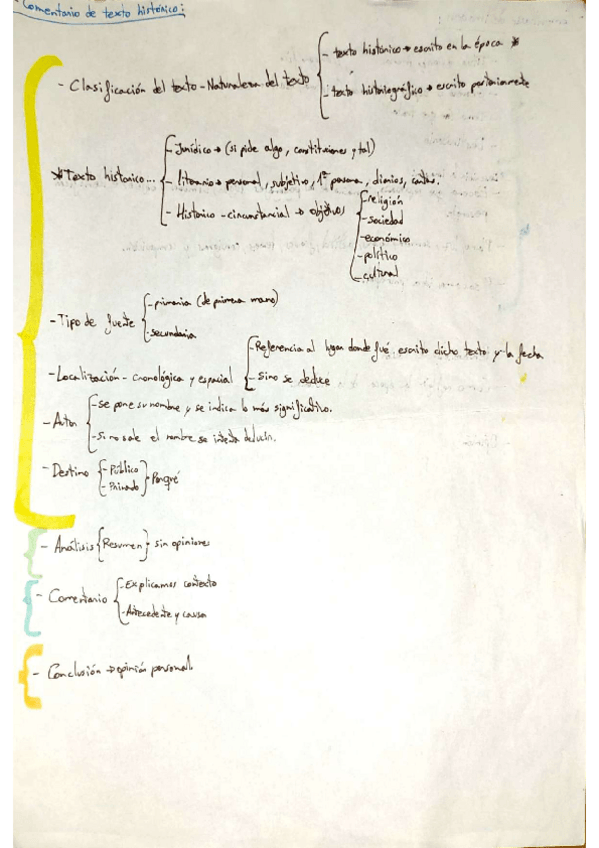 Comentario de texto histórico:
- Clasificación del texto - Naturaleza del texto
- texto histórico → escrito en la época *
- texto historiográfico → escrito posteriormente
* Texto historico...
- Jurídico → (si pide algo, constituciones y tal)
- literario → personal, subjetivo, 1ª persona, diarios, cartas.
- Histórico - circunstancial → objetivos
- religión
- sociedad
- económico
- político
- cultural
- Tipo de fuente
- primaria (de primera mano)
- secundaria
- Localización - cronológica y espacial
- Referencia al lugar donde fué escrito dicho texto y la fecha
- Sino se deduce
- Autor
- se pone su nombre y se indica lo más significativo.
- Si no sale el nombre se intenta deducir.
- Destino
- Público
- Privado
Porqué
- Análisis {Resumen} - sin opiniones
- Comentario
- Explicamos contexto
- Antecedente y causa
- Conclusión → opinión personal.